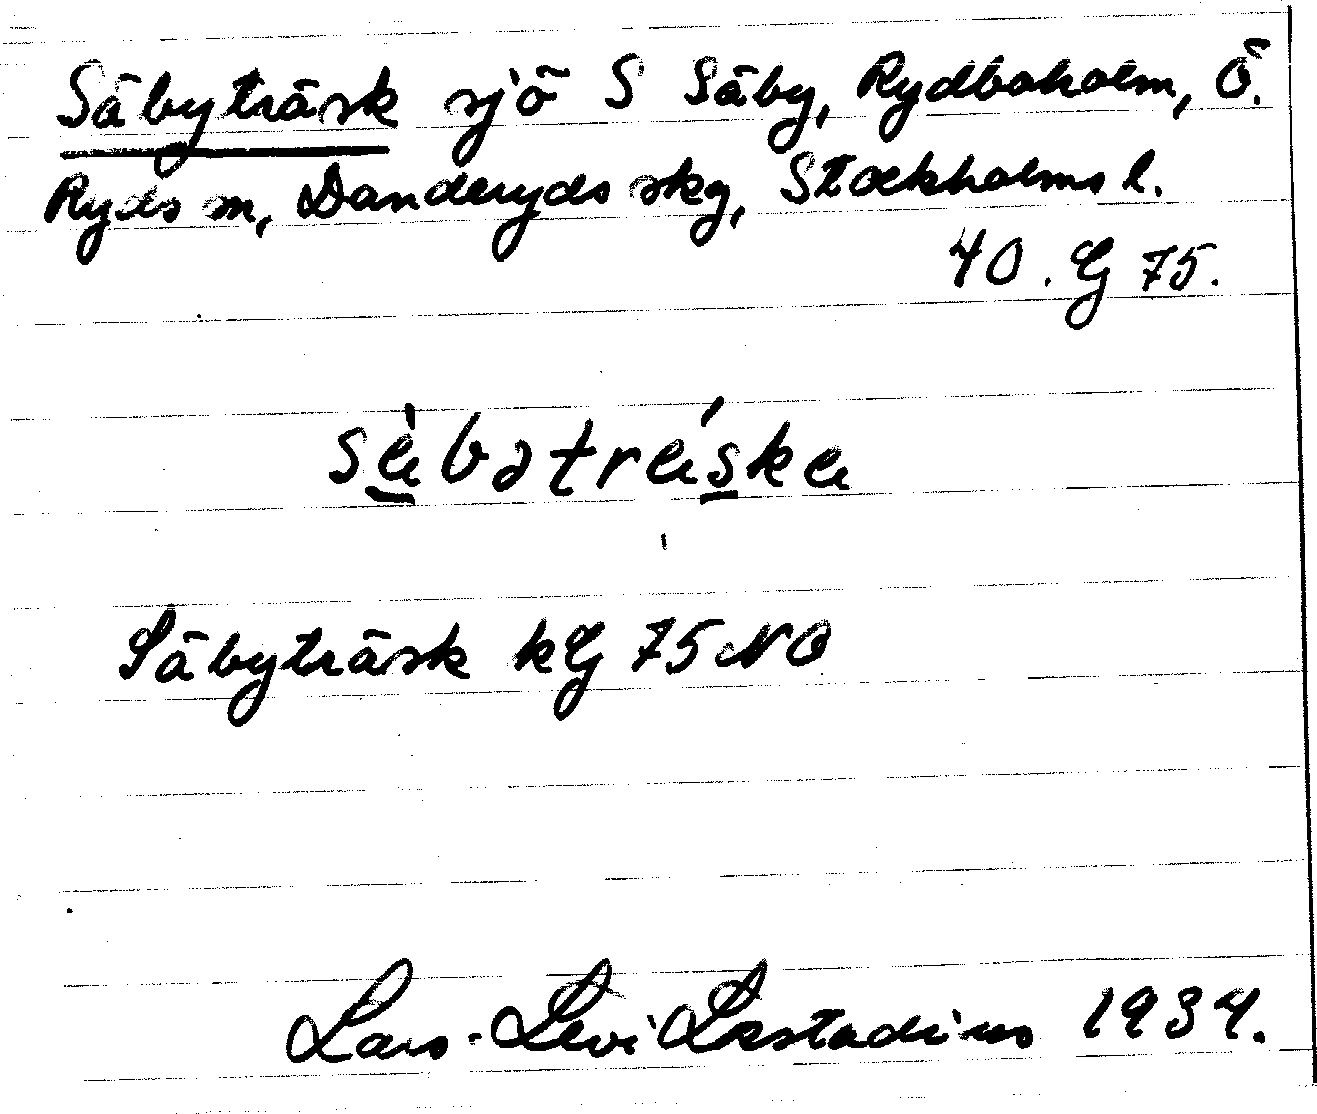 Säbyträsk sjö S Säby, Rydboholm, Ö.
Ryds sn, Danderyds skg, Stockholms l.
40. G 75.
sä̀bəträ́skä
Säbyträsk kG 75 NO
Lars-Levi Læstadius 1934.